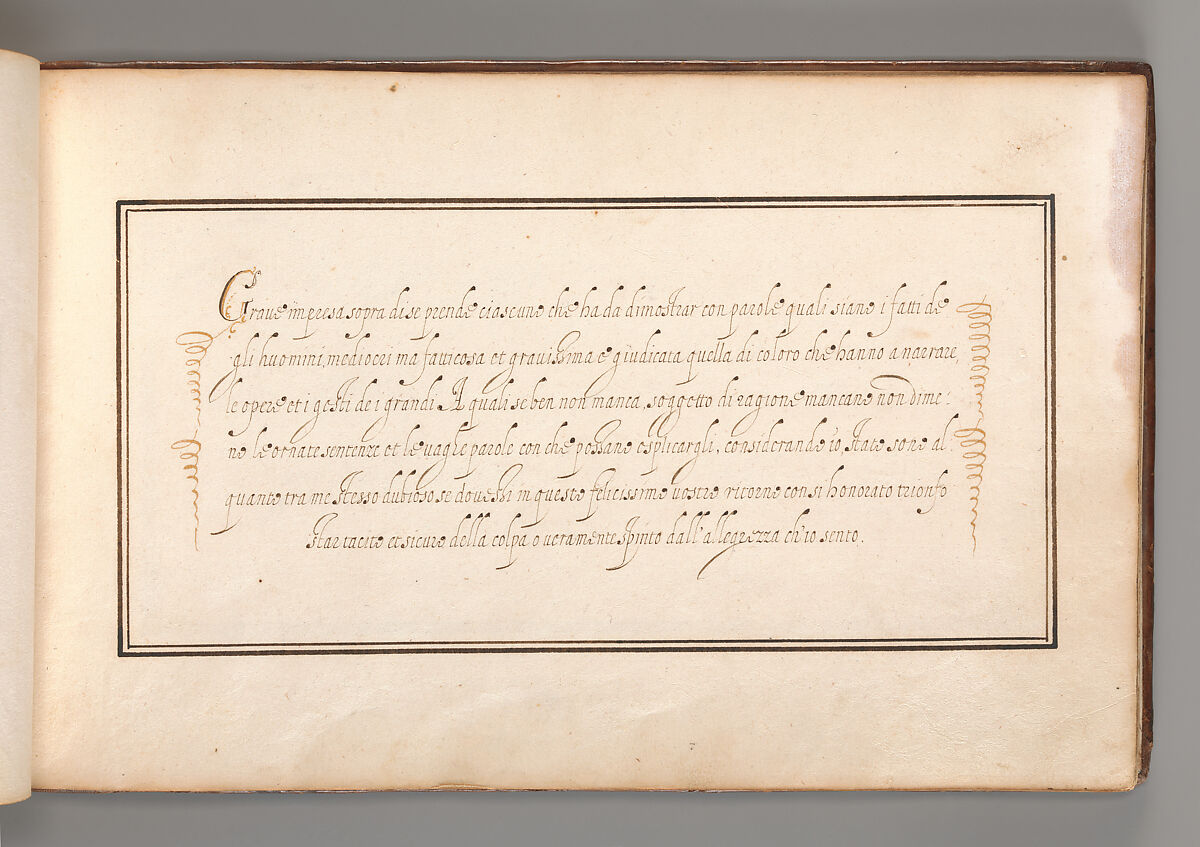 Grave impresa sopra di se prende ciascuno che ha da dimostrar con parole quali siano i fatti de
gli huomini, mediocri ma fatticosa et gravissima e giudicata quella di coloro che hanno a narrare,
le opere et i gesti de i grandi. A quali se ben non manca, soggetto di ragione mancano non dime:
no le ornate sentenze et le vaghe parole con che possano esplicargli, considerando io, stato sono al
quanto tra me stesso dubioso se dovessi in questo felicissimo vostro ritorno con si honorato trionfo
star tacito et sicuro della colpa o veramente spinto dall' allegrezza ch'io sento.